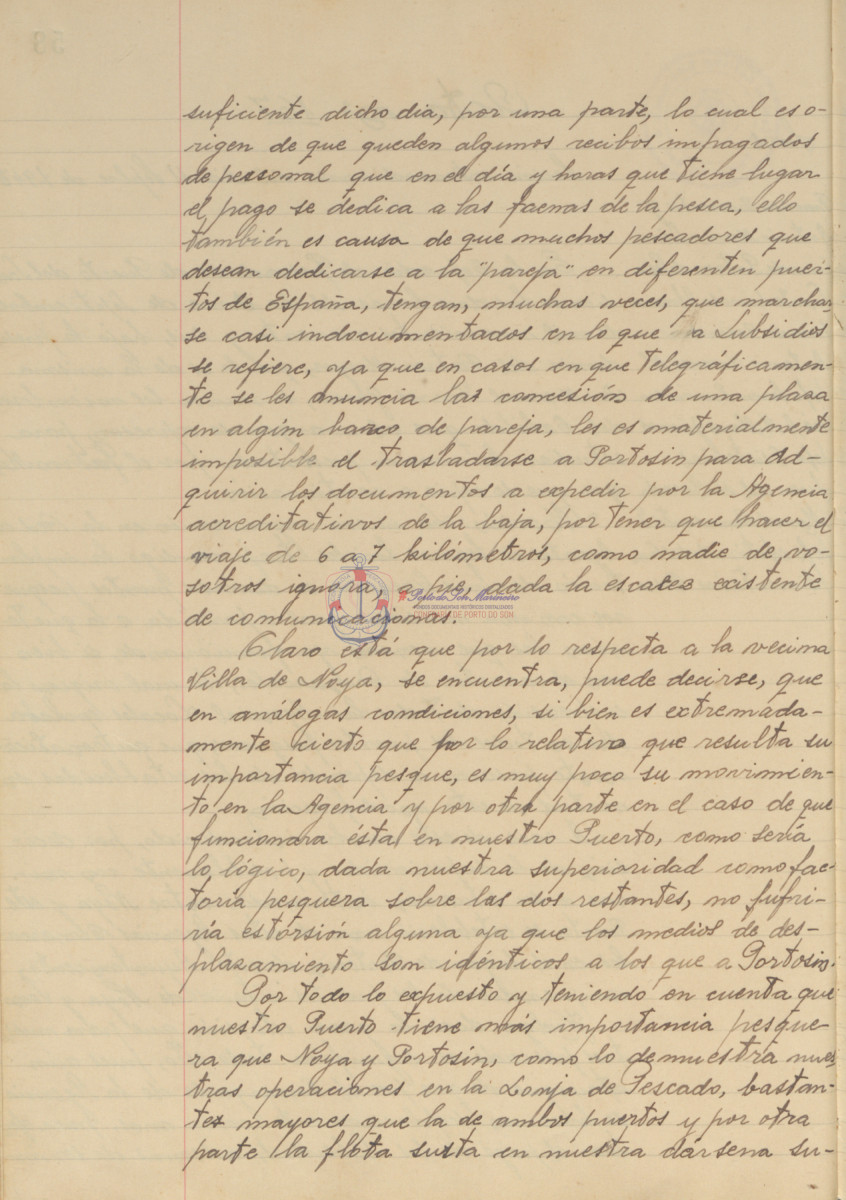 suficiente dicho dia, por una parte, lo cual es o-
rigen de que queden algunos recibos impagados
de personal que en el día y horas que tiene lugar
el pago se dedica a las faenas de la pesca, ello
también es causa de que muchos pescadores que
desean dedicarse a la "pareja" en diferenten puer-
tos de España, tengan, muchas veces, que marchar
se casi indocumentados en lo que a Subsidios
se refiere, ya que en casos en que telegráficamen-
te se les anuncia las concesión de una plaza
en algún barco de pareja, les es materialmente
imposible el trasladarse a Portosin para ad-
quirir los documentos a expedir por la Agencia
acreditativos de la baja, por tener que hacer el
viaje de 6 a 7 kilómetros, como nadie de vo-
sotros ignora, a pie, dada la escasez existente
de comunicacionas.
Claro está que por lo respecta a la vecina
Villa de Noya, se encuentra, puede decirse, que
en análogas condiciones, si bien es extremada-
mente cierto que por lo relativo que resulta su
importancia pesque, es muy poco su movimien-
to en la Agencia y por otra parte en el caso de que
funcionara ésta en nuestro Puerto, como sería
lo lógico, dada nuestra superioridad como fac-
toría pesquera sobre las dos restantes, no sufri-
ría estorsión alguna ya que los medios de des-
plazamiento son idénticos a los que a Portosin.
Por todo lo expuesto y teniendo en cuenta que
nuestro Puerto tiene más importancia pesque-
ra que Noya y Portosín, como lo demuestra nues
tras operaciones en la Lonja de Pescado, bastan-
tes mayores que la de ambos puertos y por otra
parte la flota surta en nuestra dársena su-
Porto do Son Marineiro
FONDOS DOCUMENTAIS HISTÓRICOS DIXITALIZADOS
CONCELLO DE PORTO DO SON